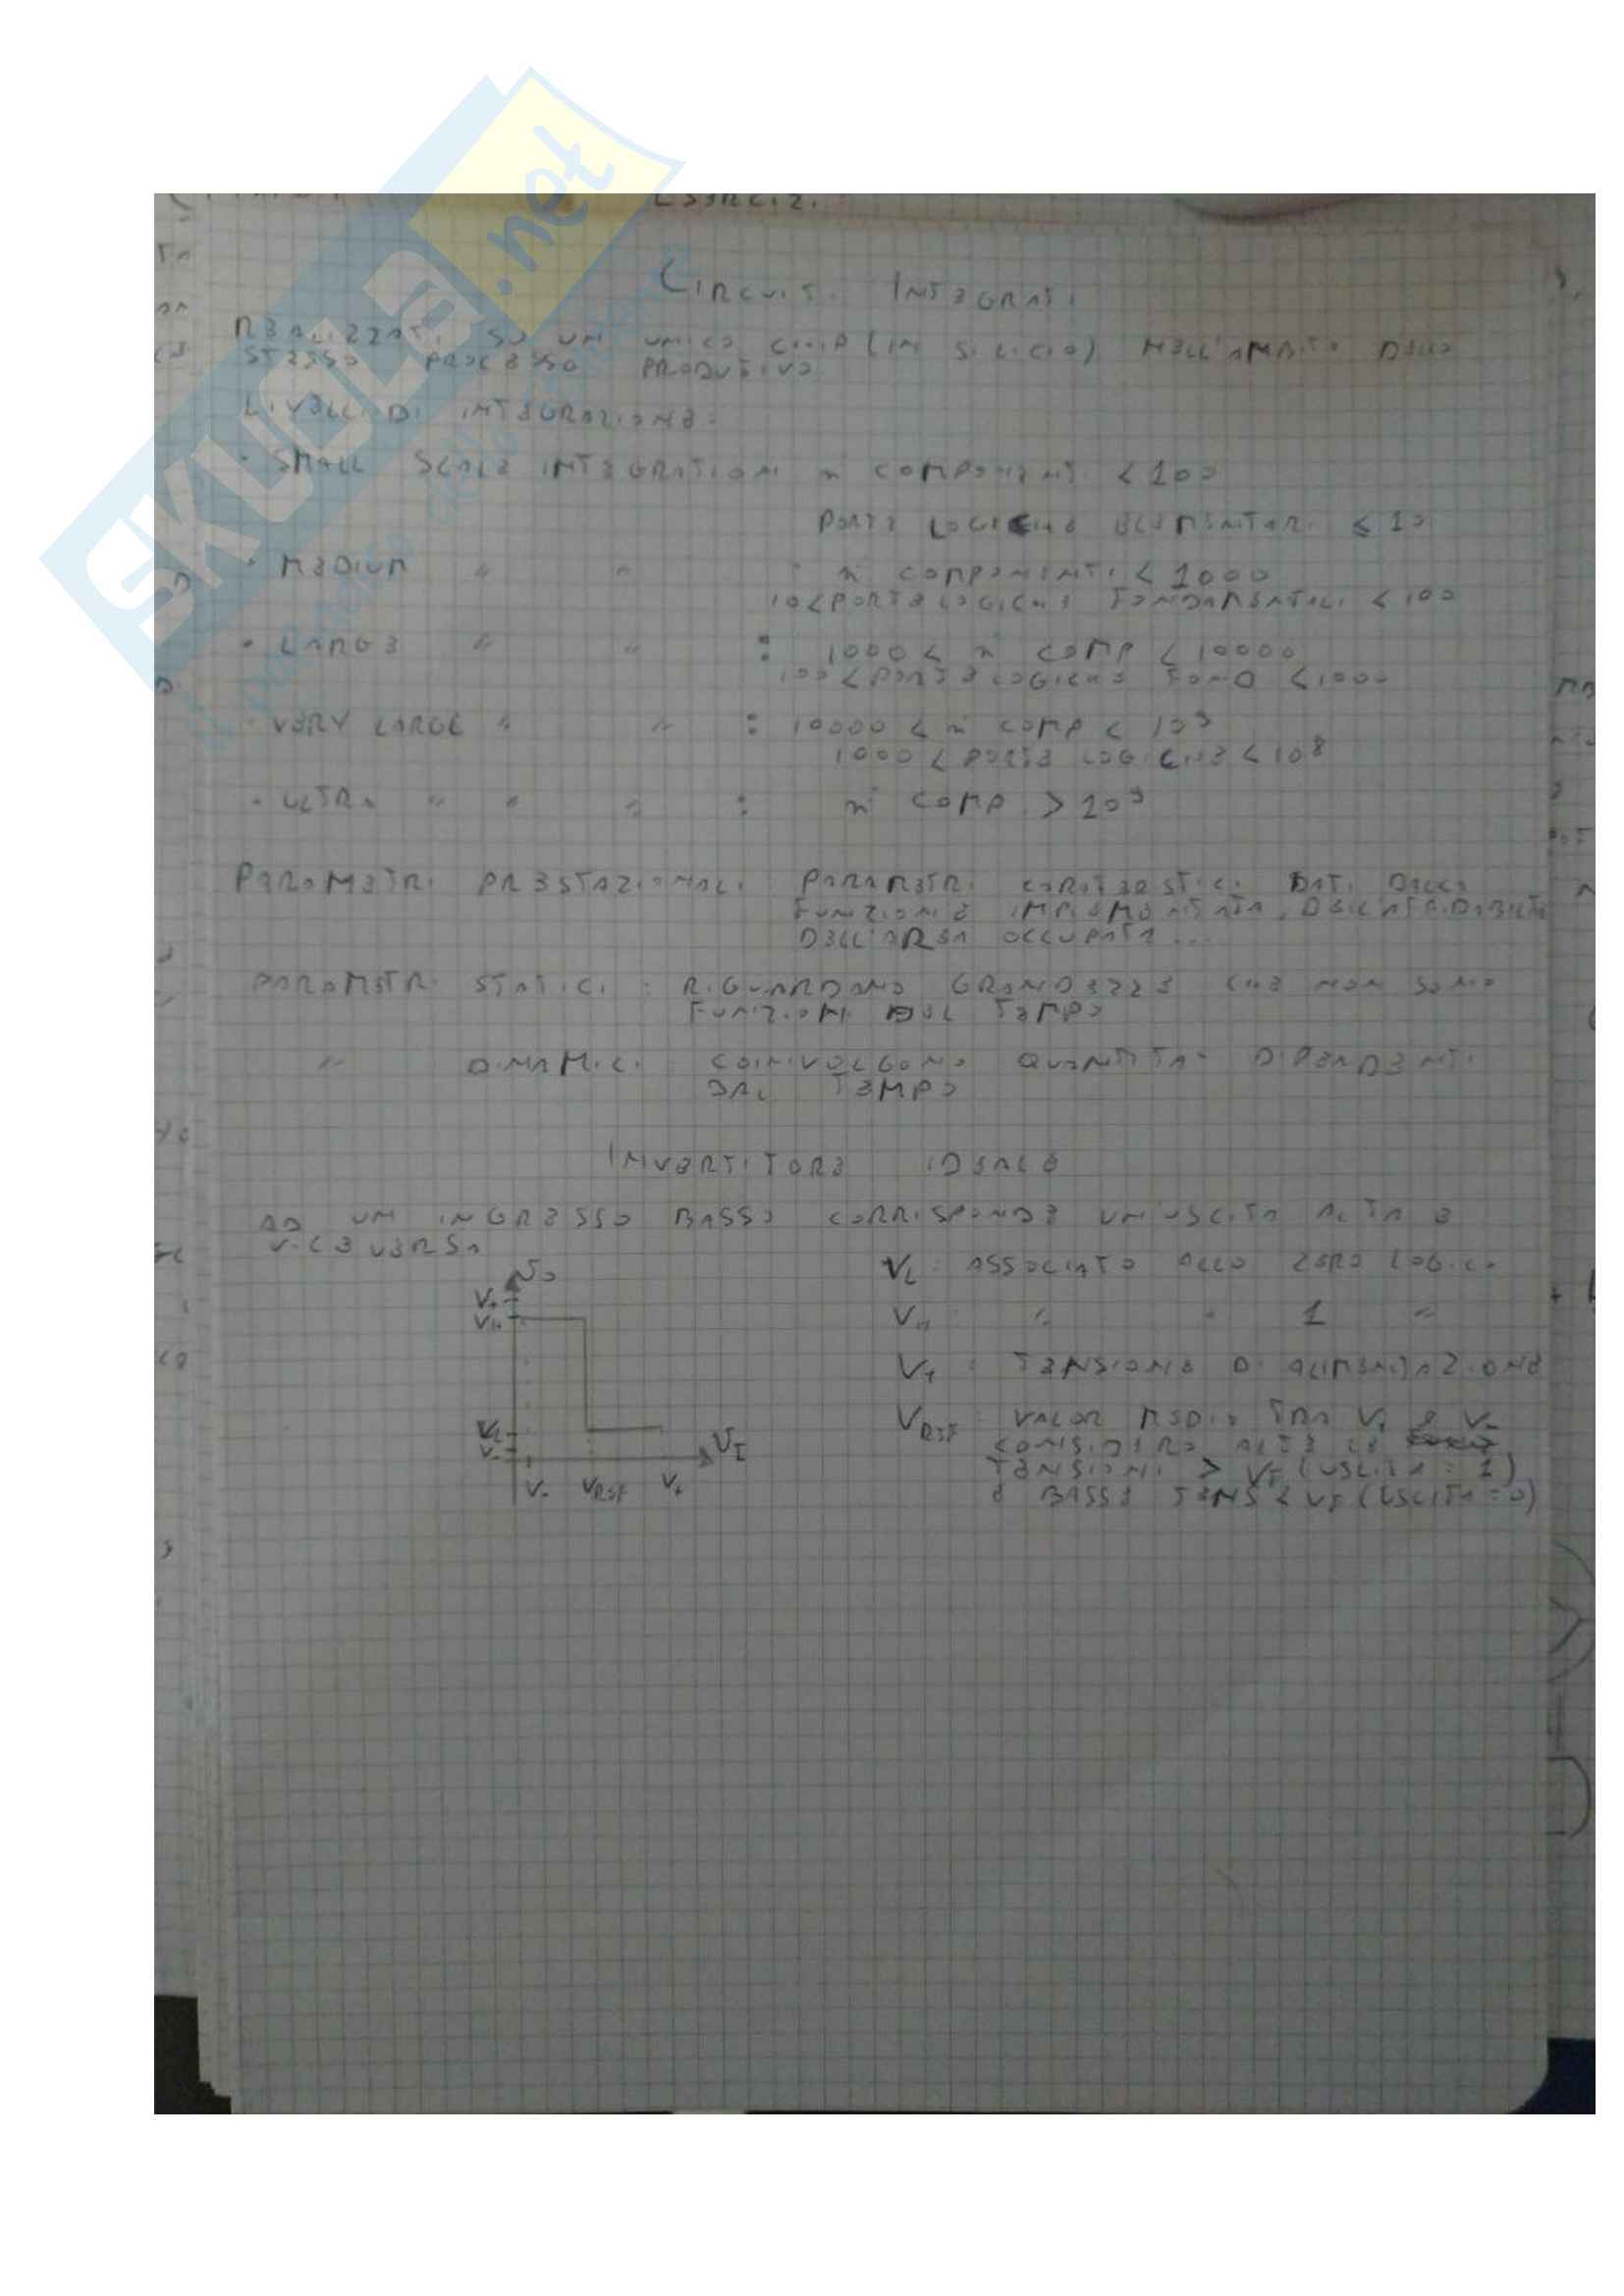 ESERCIZI
CIRCUITI INTEGRATI
REALIZZATI SU UN UNICO CHIP (IN SILICIO) NELL'AMBITO DELLO
STESSO PROCESSO PRODUTIVO
LIVELLI DI INTEGRAZIONE:
• SMALL SCALE INTEGRATION n° COMPONENTI < 100
PORTE LOGICHE ELEMENTARI ≤ 10
• MEDIUM " " : n° COMPONENTI < 1000
10 < PORTE LOGICHE FONDAMENTALI < 100
• LARGE " " : 1000 < n° COMP < 10000
100 < PORTE LOGICHE FOND < 1000
• VERY LARGE " " : 10000 < n° COMP < 10⁹
1000 < PORTE LOGICHE < 10⁸
• ULTRA " " " : n° COMP. > 10⁹
PARAMETRI PRESTAZIONALI PARAMETRI CARATTERISTICI DATI DALLA
FUNZIONE IMPLEMENTATA, DELL'AFFIDABILITÀ
DELL'AREA OCCUPATA ...
PARAMETRI STATICI : RIGUARDANO GRANDEZZE CHE NON SONO
FUNZIONI DEL TEMPO
" DINAMICI : COINVOLGONO QUANTITA' DIPENDENTI
DAL TEMPO
INVERTITORE IDEALE
AD UN INGRESSO BASSO CORRISPONDE UN USCITA ALTA E
VICEVERSA
V_L : ASSOCIATO ALLO ZERO LOGICO
V_H : " " 1 "
V_+ : TENSIONE DI ALIMENTAZIONE
V_REF : VALOR MEDIO TRA V_+ E V_-
CONSIDERO ALTE LE
TENSIONI > V_F (USCITA = 1)
E BASSE TENS < V_F (USCITA = 0)
V_O
V_+
V_H
V_L
V_-
V_I
V_- V_REF V_+
SKUOLA.net